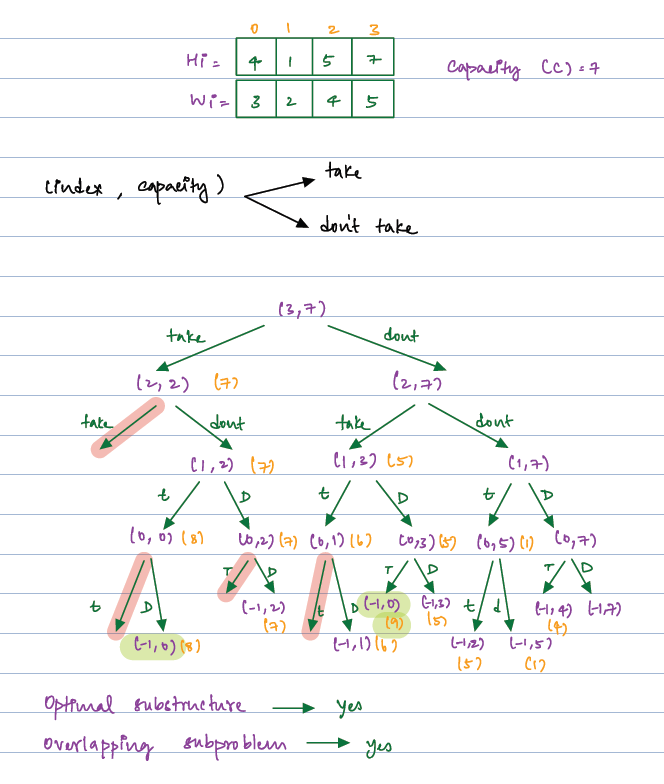 0 1 2 3
Hi = 4 1 5 7
Capacity (C) = 7
Wi = 3 2 4 5
(index, capacity)
take
don't take
(3,7)
take dont
(2,2) (7) (2,7)
take dont take dont
(1,2) (7) (1,3) (5) (1,7)
t D t D t D
(0,0) (8) (0,2) (7) (0,1) (6) (0,3) (5) (0,5) (1) (0,7)
t D T D t D T D t d T D
(-1,2) (-1,0) (-1,3) (-1,4) (-1,7)
(7) (9) (5) (4)
(-1,0) (8) (-1,1) (6) (-1,2) (-1,5)
(5) (1)
Optimal substructure → yes
Overlapping subproblem → yes